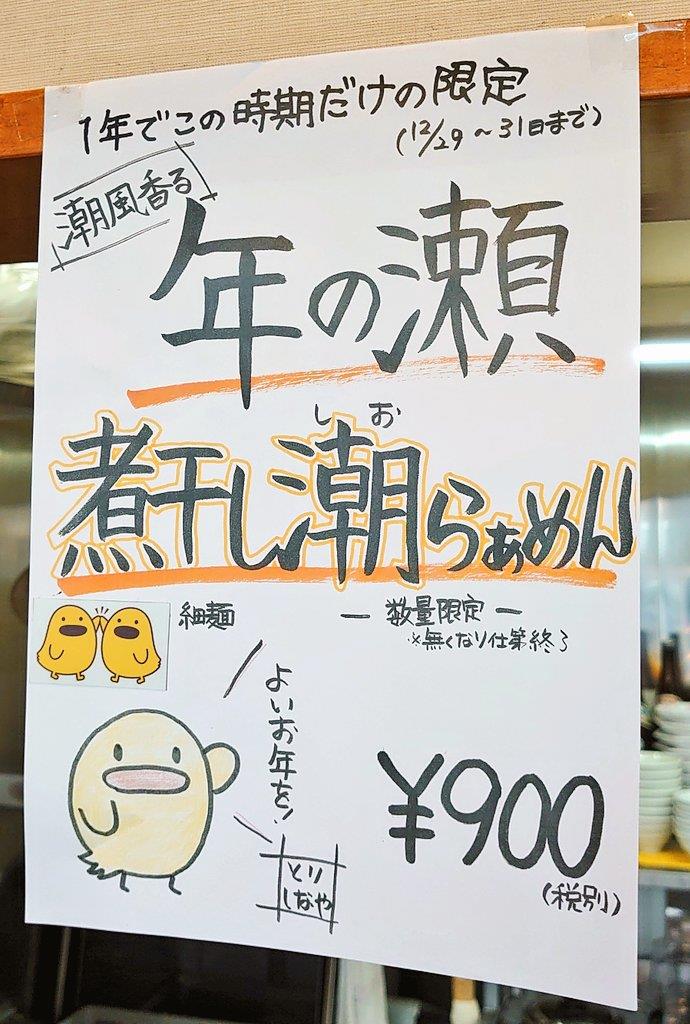 1年でこの時期だけの限定
(12/29～31日まで)
潮風香る
年の瀬
しお
煮干し潮らぁめん
細麺
ー 数量限定 ー
※無くなり仕第終了
よいお年を!
とり
しなや
¥900
(税別)